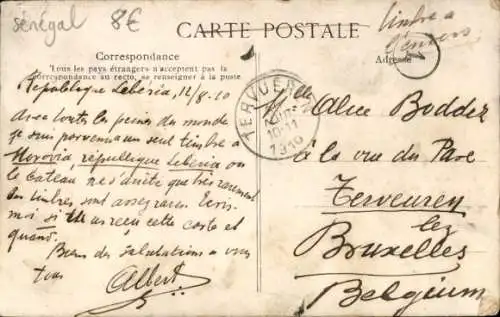 Sénégal 8€
CARTE POSTALE
timbre a
l'envers
Correspondance
Tous les pays étrangers n'acceptent pas la
correspondance au recto, se renseigner à la poste
Adresse
République Libéria, 12/8.10
Avec toutes les peines du monde
je suis parvenu un seul timbre a
Monrovia, république Libéria ou
le bateau ne s'arrête que très rarement
les timbres sont assez rares. Ecris-
moi si tu as reçu cette carte et
quand.
Bien des salutations a vous
tous
Albert
TERVUEREN
10-11
1910
Mlle Alice Boddez
à la rue du Parc
Tervueren
lez
Bruxelles
Belgium